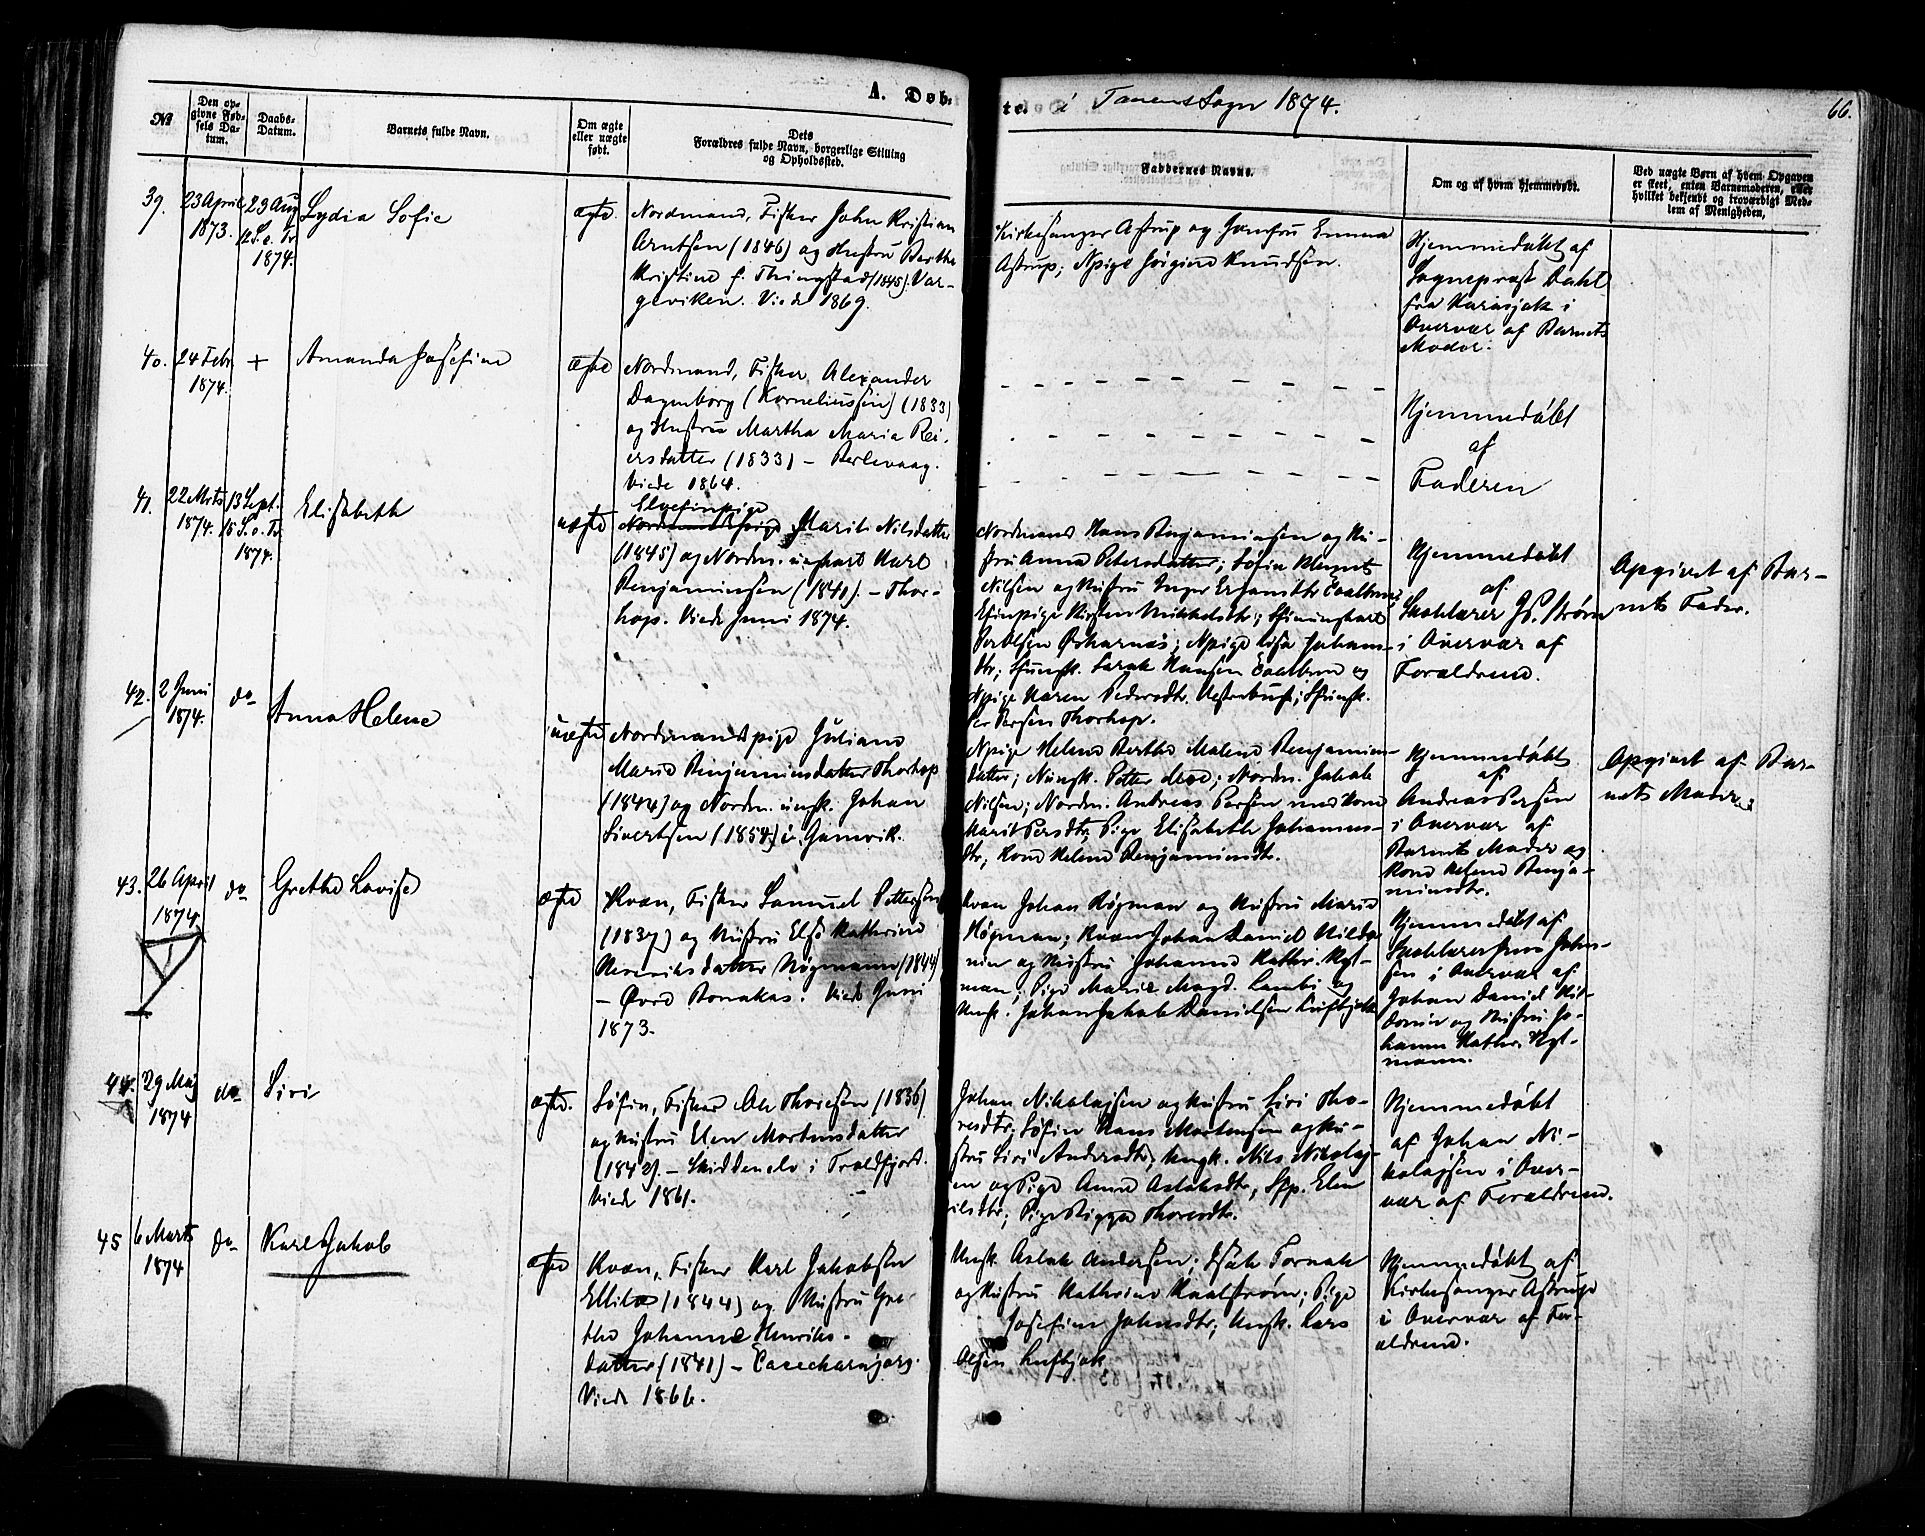 A. Døbte. i Tanens Sogn 1874. 66.
No
Den opgivne Fødsels Datum.
Daabs-Datum.
Barnets fulde Navn.
Om ægte eller uægte født.
Dets Forældres fulde Navn, borgerlige Stilling og Opholdssted.
Faddernes Navne.
Om og af hvem hjemmedøbt.
Ved uægte Børn af hvem Opgaven er skeet, enten Barnemoderen, eller hvilket bekjendt og troværdigt Medlem af Menigheden.
39.
23 April
1873.
23 Aug
12 S. e. Tr.
1874.
Lydia Sofie
ægte.
Nordmand, Fisker John Kristian
Arntsen (1846) og Hustru Berthe
Kristine f. Thingstad (1845). Var-
geviken. Viede 1869.
Kirkesanger Astrup og Jomfru Emma
Astrup; Npige Jørgine Knudsen.
Hjemmedøbt af
Sogneprest Dahl
fra Karasjok i
Overvær af Barnets
Moder.
40.
24 Febr
1874.
+
Amanda Josefine
ægte
Nordmand, Fisker Alexander
Dagenborg (Korneliussen) (1833)
og Hustru Martha Maria Rei-
ersdatter (1833) – Berlevaag.
Viede 1864.
Hjemmedøbt
af
Faderen
41.
22 Mrts
1874.
13 Sept.
15 S. e. Tr.
1874.
Elisabeth
uægte
Elvefinpige
Marit Nilsdatter
(1845) og Nordm. ungkarl Karl
Benjaminsen (1840). – Thor-
hop. Viede Juni 1874.
Nordmand Hans Benjaminsen og Hu-
stru Anna Petersdatter; Søfin
Nilsen og Hustru Inger
Efinpige Kirsten Mikkelsdtr;
Npige Lisa Johans-
dtr; Sarak Hansen og
Npige Karen Pedersdtr. Vesterbugt; Sfinsk.
Per Persen Thorhop.
Hjemmedøbt
af
Skolelærer Js. Strøm
i Overvær af
Forældrene.
Opgivet af Bar-
nets Fader.
42.
2 Juni
1874.
do
Anna Helene
uægte
Nordmandspige Juliane
Marie Benjaminsdatter Thorhop
(1844) og Nordm. ungk. Johan
Sivertsen (1854) i Gamvik.
Npige Helene Berthe Malene Benjamins-
datter; Nungk. Petter ; Nordm. Jakob
Nilsen; Nordm. Andreas Persen med Kone
Marit Persdtr; Pige Elisabeth Johannes-
dtr; Kone Helene Benjaminsdtr.
Hjemmedøbt
af
Andreas Persen
i Overvær af
Barnets Moder og
Kone Helene Benja-
minsdtr.
Opgivet af Bar-
nets Moder
43.
26 April
1874.
do
Grethe Lovise
ægte
Kvæn, Fisker Samuel Pettersen
(1837) og Hustru Else Kathrine
Henriksdatter Høgmann (1844)
– Øvre Bonakas. Viede Juni
1873.
Kvæn Johan Høgman og Hustru Marie
Høgman; Kvæn Johan Daniel Kildo-
nin og Hustru Johanne Kathr. Kyl-
man; Pige Marie Magd. Lambi og
Ungk. Johan Jakob Danielsen Luftjok
Hjemmedøbt af
Skolelærer Jens John-
sen i Overvær af
Johan Daniel Kil-
donin og Hustru Jo-
hanne Kathr. Kyl-
mann.
44.
29 Maj
1874
do
Siri
ægte.
Søfin, Fisker Ole Thoresen (1836)
og Hustru Elen Mortensdatter
(1842). – Skiddenelv i Troldfjord.
Viede 1861.
Johan Nikolajsen og Hustru Siri Tho-
resdtr; Søfin Hans Mortensen og Hu-
stru Siri Andersdtr; Ungk. Nils Nikolaj-
sen og Pige Anne Aslaksdtr, Sfp. Elen
Nilsdtr; Pige Bigga Thoresdtr.
Hjemmedøbt
af Johan Ni-
kolajsen i Over-
vær af Forældrene.
45
6 Marts
1874
do
Karl Jakob
ægte
Kvæn, Fisker Karl Jakobsen
Ellilæ (1844) og Hustru Gre-
the Johanne Henriks-
datter (1841) –
Viede 1866.
Ungk. Aslak Andersen; Isak Tornak
og Hustru Kathrine Kaalstrøm; Pige
Josefine Johnsdtr; Ungk. Lars
Olsen Luftjok
Hjemmedøbt af
Kirkesanger Astrup
i Overvær af For-
ældrene.